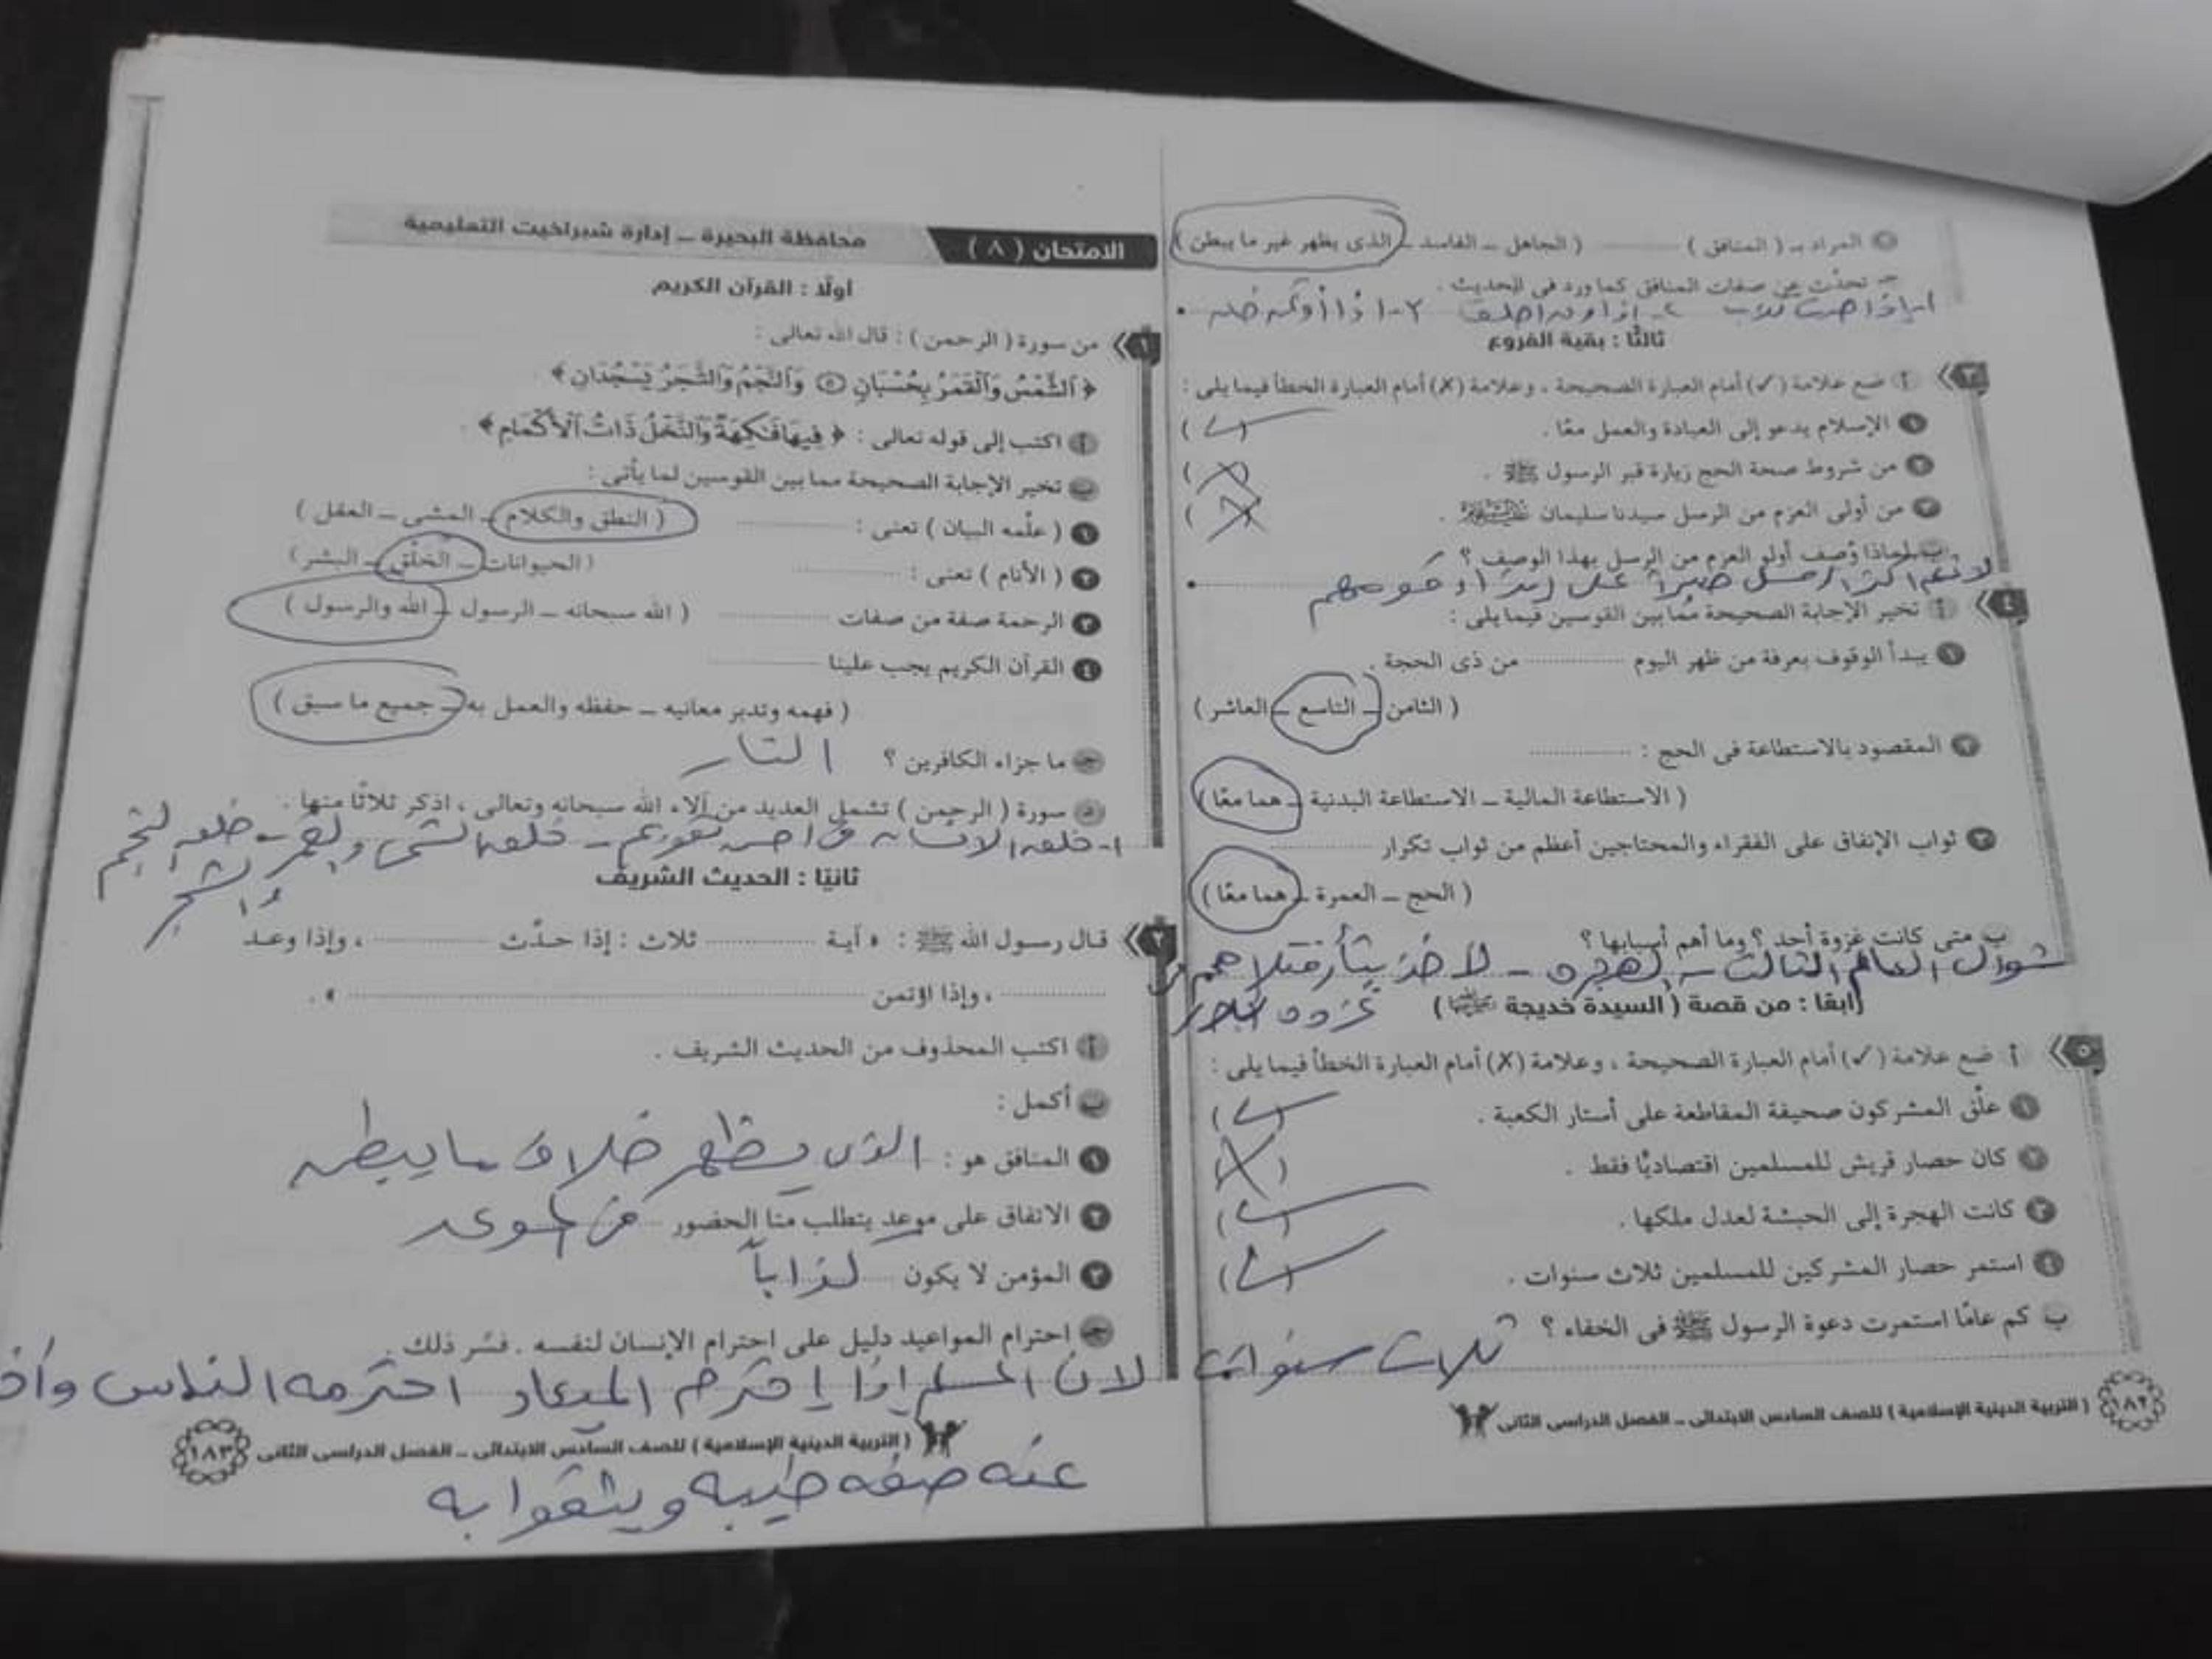 المراد بـ ( المنافق ) ............ ( الجاهل ــ الفاسد ــ الذى يظهر غير ما يبطن )
جـ تحدث عن صفات المنافق كما ورد فى الحديث .
ثالثًا : بقية الفروع
٣ أ ضع علامة (✓) أمام العبارة الصحيحة ، وعلامة (✗) أمام العبارة الخطأ فيما يلى :
١ الإسلام يدعو إلى العبادة والعمل معًا . (✓)
٢ من شروط صحة الحج زيارة قبر الرسول ﷺ . (✗)
٣ من أولى العزم من الرسل سيدنا سليمان . (✗)
ب لماذا وُصف أولو العزم من الرسل بهذا الوصف ؟
٤ أ تخير الإجابة الصحيحة مما بين القوسين فيما يلى :
١ يبدأ الوقوف بعرفة من ظهر اليوم ............ من ذى الحجة .
( الثامن ــ التاسع ــ العاشر )
٢ المقصود بالاستطاعة فى الحج : ............
( الاستطاعة المالية ــ الاستطاعة البدنية ــ هما معًا )
٣ ثواب الإنفاق على الفقراء والمحتاجين أعظم من ثواب تكرار ............
( الحج ــ العمرة ــ هما معًا )
ب متى كانت غزوة أحد ؟ وما أهم أسبابها ؟
شوال العام الثالث الهجره ـ لاخذ بثأر قتلاهم
رابعًا : من قصة ( السيدة خديجة )
٥ أ ضع علامة (✓) أمام العبارة الصحيحة ، وعلامة (✗) أمام العبارة الخطأ فيما يلى :
١ علّق المشركون صحيفة المقاطعة على أستار الكعبة . (✓)
٢ كان حصار قريش للمسلمين اقتصاديًا فقط . (✗)
٣ كانت الهجرة إلى الحبشة لعدل ملكها . (✓)
٤ استمر حصار المشركين للمسلمين ثلاث سنوات . (✓)
ب كم عامًا استمرت دعوة الرسول ﷺ فى الخفاء ؟
ثلاث سنوات
١٨٢ ( التربية الدينية الإسلامية ) للصف السادس الابتدائى ــ الفصل الدراسى الثانى
الامتحان ( ٨ ) محافظة البحيرة ــ إدارة شبراخيت التعليمية
أولًا : القرآن الكريم
١ من سورة ( الرحمن ) : قال الله تعالى :
﴿ ٱلشَّمْسُ وَٱلْقَمَرُ بِحُسْبَانٍ ۝ وَٱلنَّجْمُ وَٱلشَّجَرُ يَسْجُدَانِ ﴾
أ اكتب إلى قوله تعالى : ﴿ فِيهَا فَٰكِهَةٌ وَٱلنَّخْلُ ذَاتُ ٱلْأَكْمَامِ ﴾ .
ب تخير الإجابة الصحيحة مما بين القوسين لما يأتى :
١ ( علّمه البيان ) تعنى : ............ ( النطق والكلام ــ المشى ــ العقل )
٢ ( الأنام ) تعنى : ............ ( الحيوانات ــ الخلْق ــ البشر )
٣ الرحمة صفة من صفات ............ ( الله سبحانه ــ الرسول ــ الله والرسول )
٤ القرآن الكريم يجب علينا ............
( فهمه وتدبر معانيه ــ حفظه والعمل به ــ جميع ما سبق )
جـ ما جزاء الكافرين ؟ النار
د سورة ( الرحمن ) تشمل العديد من آلاء الله سبحانه وتعالى ، اذكر ثلاثًا منها .
ثانيًا : الحديث الشريف
٢ قال رسول الله ﷺ : « آية ............ ثلاث : إذا حدّث ............ ، وإذا وعد
............ ، وإذا اؤتمن ............ » .
أ اكتب المحذوف من الحديث الشريف .
ب أكمل :
١ المنافق هو : الذى يظهر خلاف ما يبطن
٢ الاتفاق على موعد يتطلب منا الحضور فى الموعد
٣ المؤمن لا يكون كذاباً
جـ احترام المواعيد دليل على احترام الإنسان لنفسه . فسّر ذلك .
لان المسلم إذا إحترم الميعاد احترمه الناس
عنه صفه طيبه ويثقوا به
( التربية الدينية الإسلامية ) للصف السادس الابتدائى ــ الفصل الدراسى الثانى ١٨٣